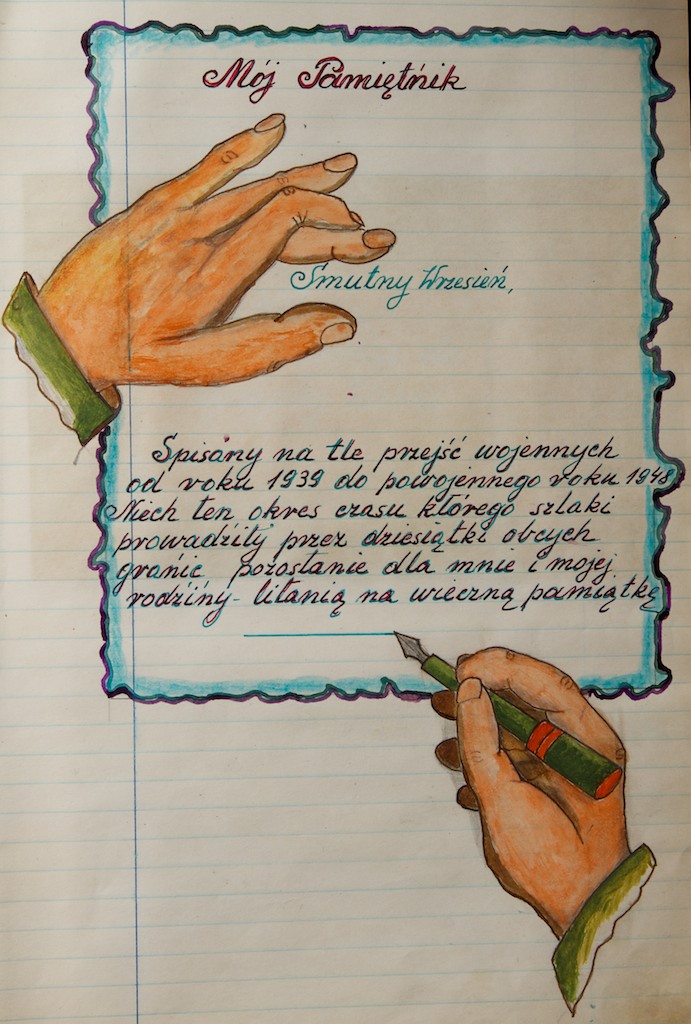 Mój Pamiętńik
Smutny Wrzesień,
Spisány na tle przejść wojennych
od roku 1939 do powojennego roku 1948
Niech ten okres czasu którego szlaki
prowadźiły przez dziesiątki obcych
gránic, pozostanie dla mnie i mojej
rodźiny - litanią na wieczną pamiątkę